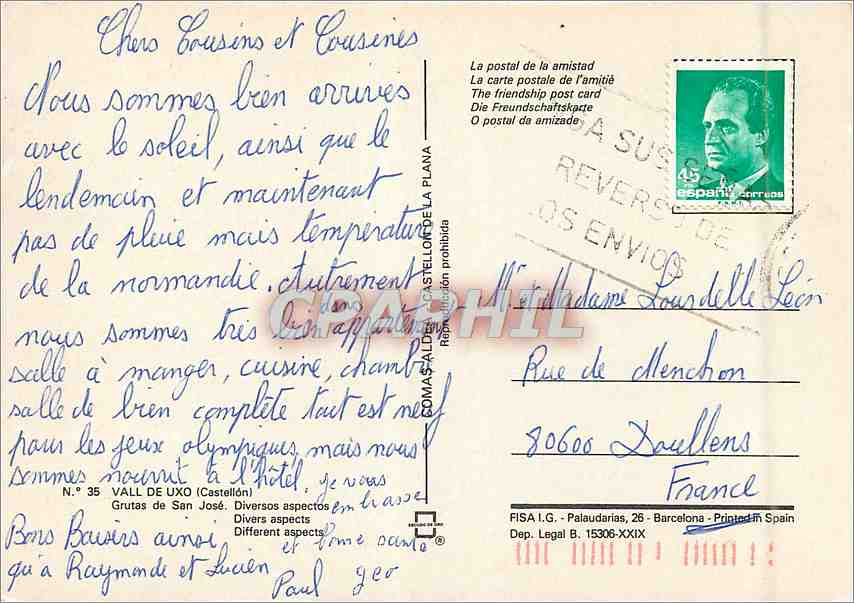 Chers Cousins et Cousines
Nous sommes bien arrivés
avec le soleil, ainsi que le
lendemain et maintenant
pas de pluie mais temperature
de la normandie. Autrement
dans
nous sommes très bien appartement
salle à manger, cuisine, chambre
salle de bien complète tout est neuf
pour les jeux olympiques, mais nous
sommes nourrit à l'hôtel. je vous
embrasse
Bons Baisers ainsi et bonne santé
qu'a Raymonde et Lucien Paul geo
N.º 35 VALL DE UXO (Castellón)
Grutas de San José. Diversos aspectos
Divers aspects
Different aspects
ESCUDO DE ORO
®
COMAS ALDEA - CASTELLON DE LA PLANA
Reproducción prohibida
CPAPHIL
La postal de la amistad
La carte postale de l'amitiè
The friendship post card
Die Freundschaftskarte
O postal da amizade
45
españa correos
GA SUS SE
REVERSO DE
LOS ENVIOS
Mr et Madame Lourdelle Léon
Rue de Menchon
80600 Doullens
France
FISA I.G. - Palaudarias, 26 - Barcelona - Printed in Spain
Dep. Legal B. 15306-XXIX